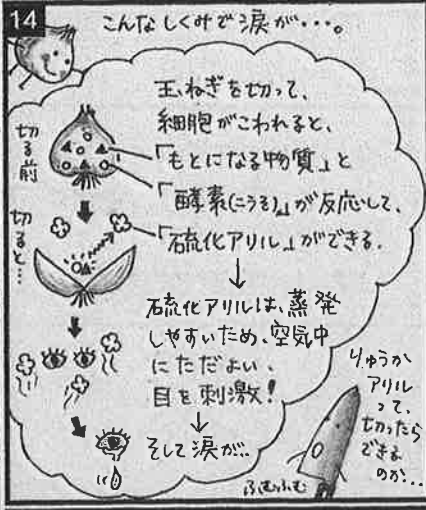 14
こんなしくみで涙が・・・。
玉ねぎを切って、
細胞がこわれると、
「もとになる物質」と
「酵素(こうそ)」が反応して、
「硫化アリル」ができる。
↓
硫化アリルは、蒸発
しやすいため、空気中
にただよい、
目を刺激!
↓
そして涙が…
切る前
切ると…
りゅうか
アリル
って、
切ったら
できる
のか…
ふむふむ